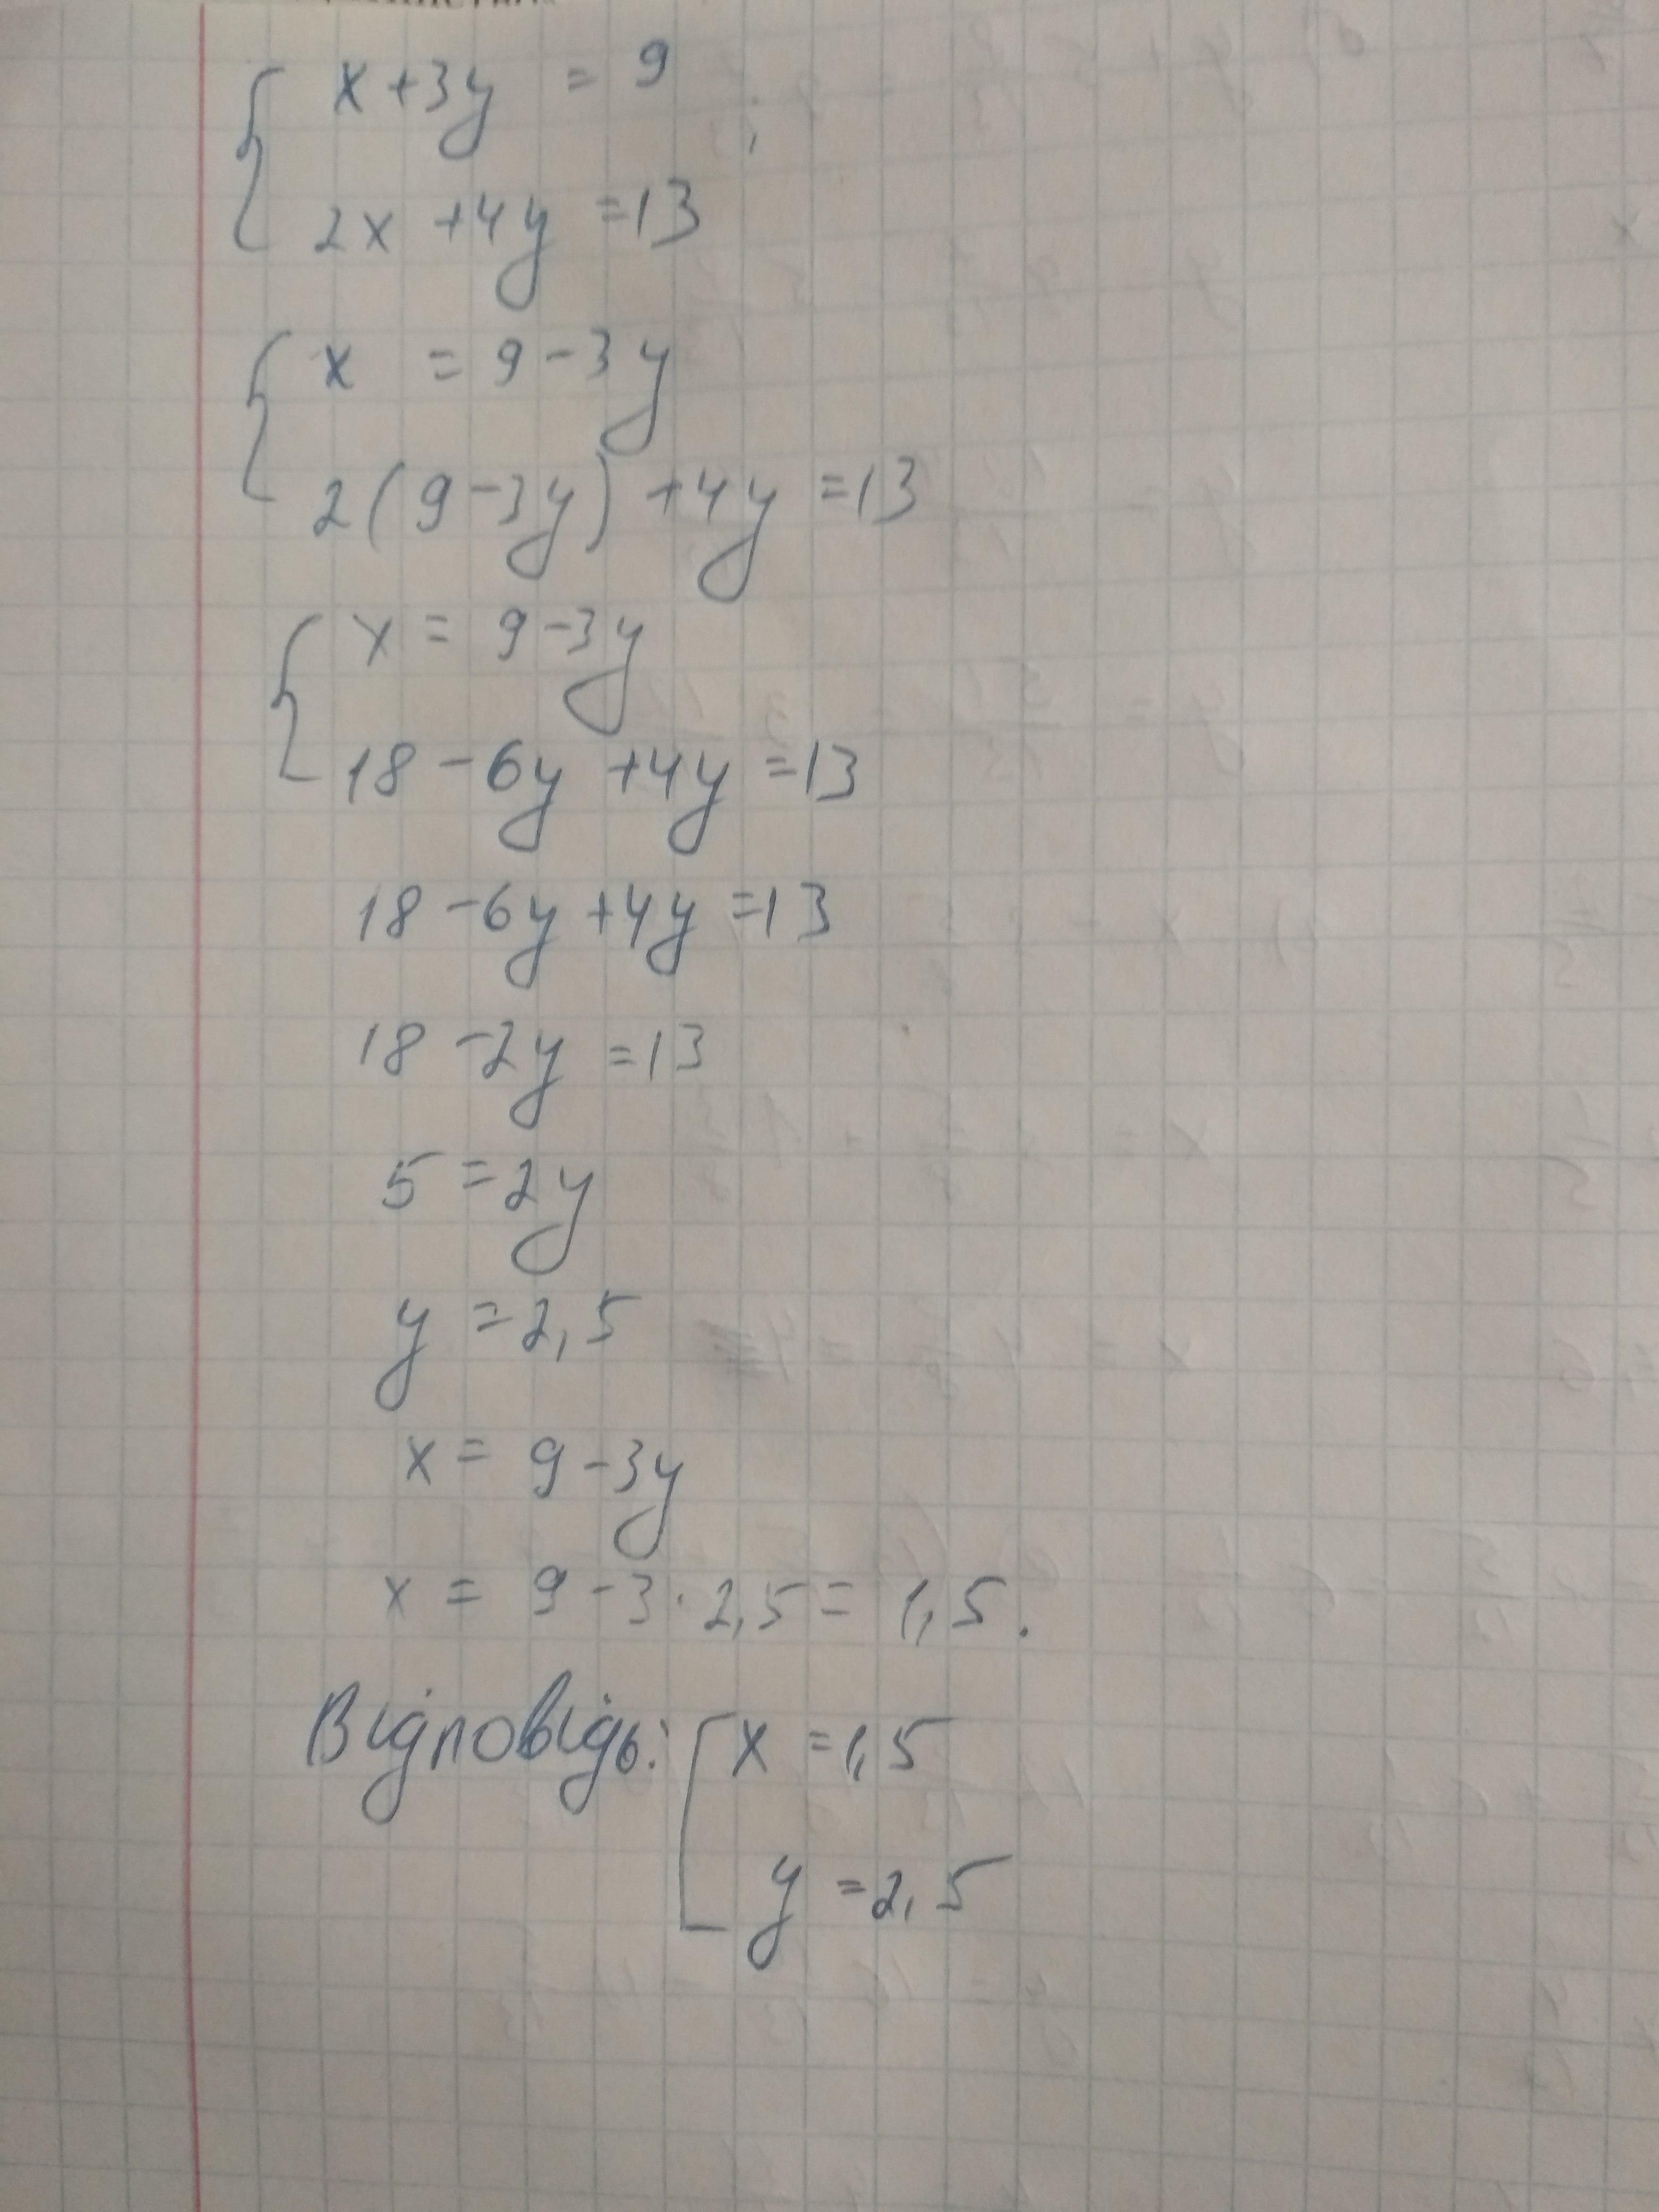 x + 3y = 9
;
2x + 4y = 13
x = 9 - 3y
2(9 - 3y) + 4y = 13
x = 9 - 3y
18 - 6y + 4y = 13
18 - 6y + 4y = 13
18 - 2y = 13
5 = 2y
y = 2,5
x = 9 - 3y
x = 9 - 3 · 2,5 = 1,5.
Відповідь: x = 1,5
y = 2,5